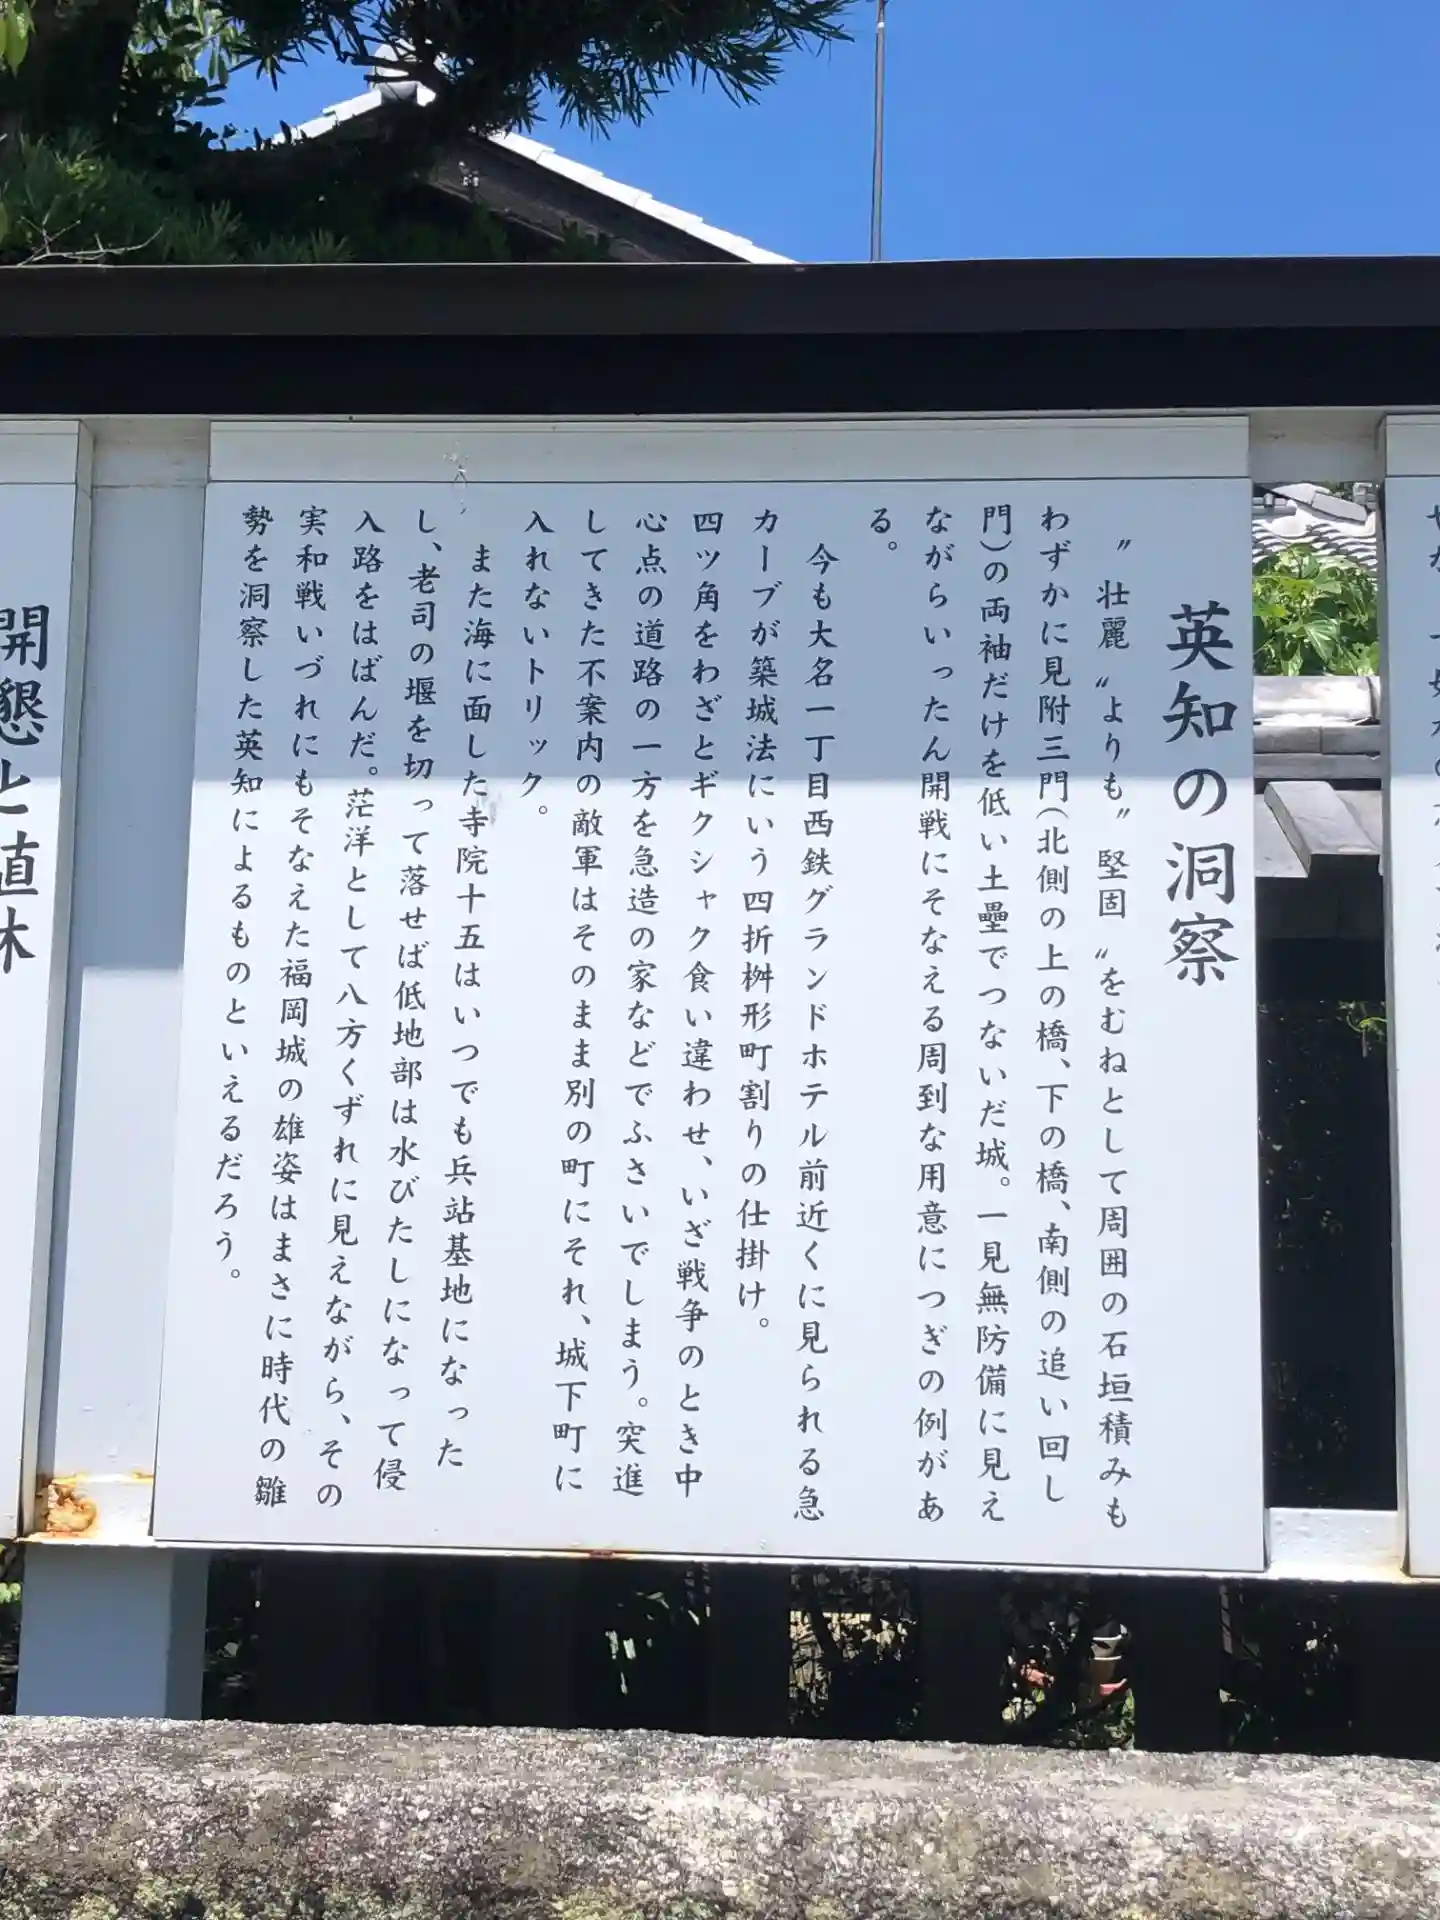 英知の洞察
〝壮麗〟よりも〝堅固〟をむねとして周囲の石垣積みも
わずかに見附三門(北側の上の橋、下の橋、南側の追い回し
門)の両袖だけを低い土壘でつないだ城。一見無防備に見え
ながらいったん開戦にそなえる周到な用意につぎの例があ
る。
今も大名一丁目西鉄グランドホテル前近くに見られる急
カーブが築城法にいう四折桝形町割りの仕掛け。
四ツ角をわざとギクシャク食い違わせ、いざ戦争のとき中
心点の道路の一方を急造の家などでふさいでしまう。突進
してきた不案内の敵軍はそのまま別の町にそれ、城下町に
入れないトリック。
また海に面した寺院十五はいつでも兵站基地になった
し、老司の堰を切って落せば低地部は水びたしになって侵
入路をはばんだ。茫洋として八方くずれに見えながら、その
実和戦いづれにもそなえた福岡城の雄姿はまさに時代の雛
勢を洞察した英知によるものといえるだろう。
開懇と植林